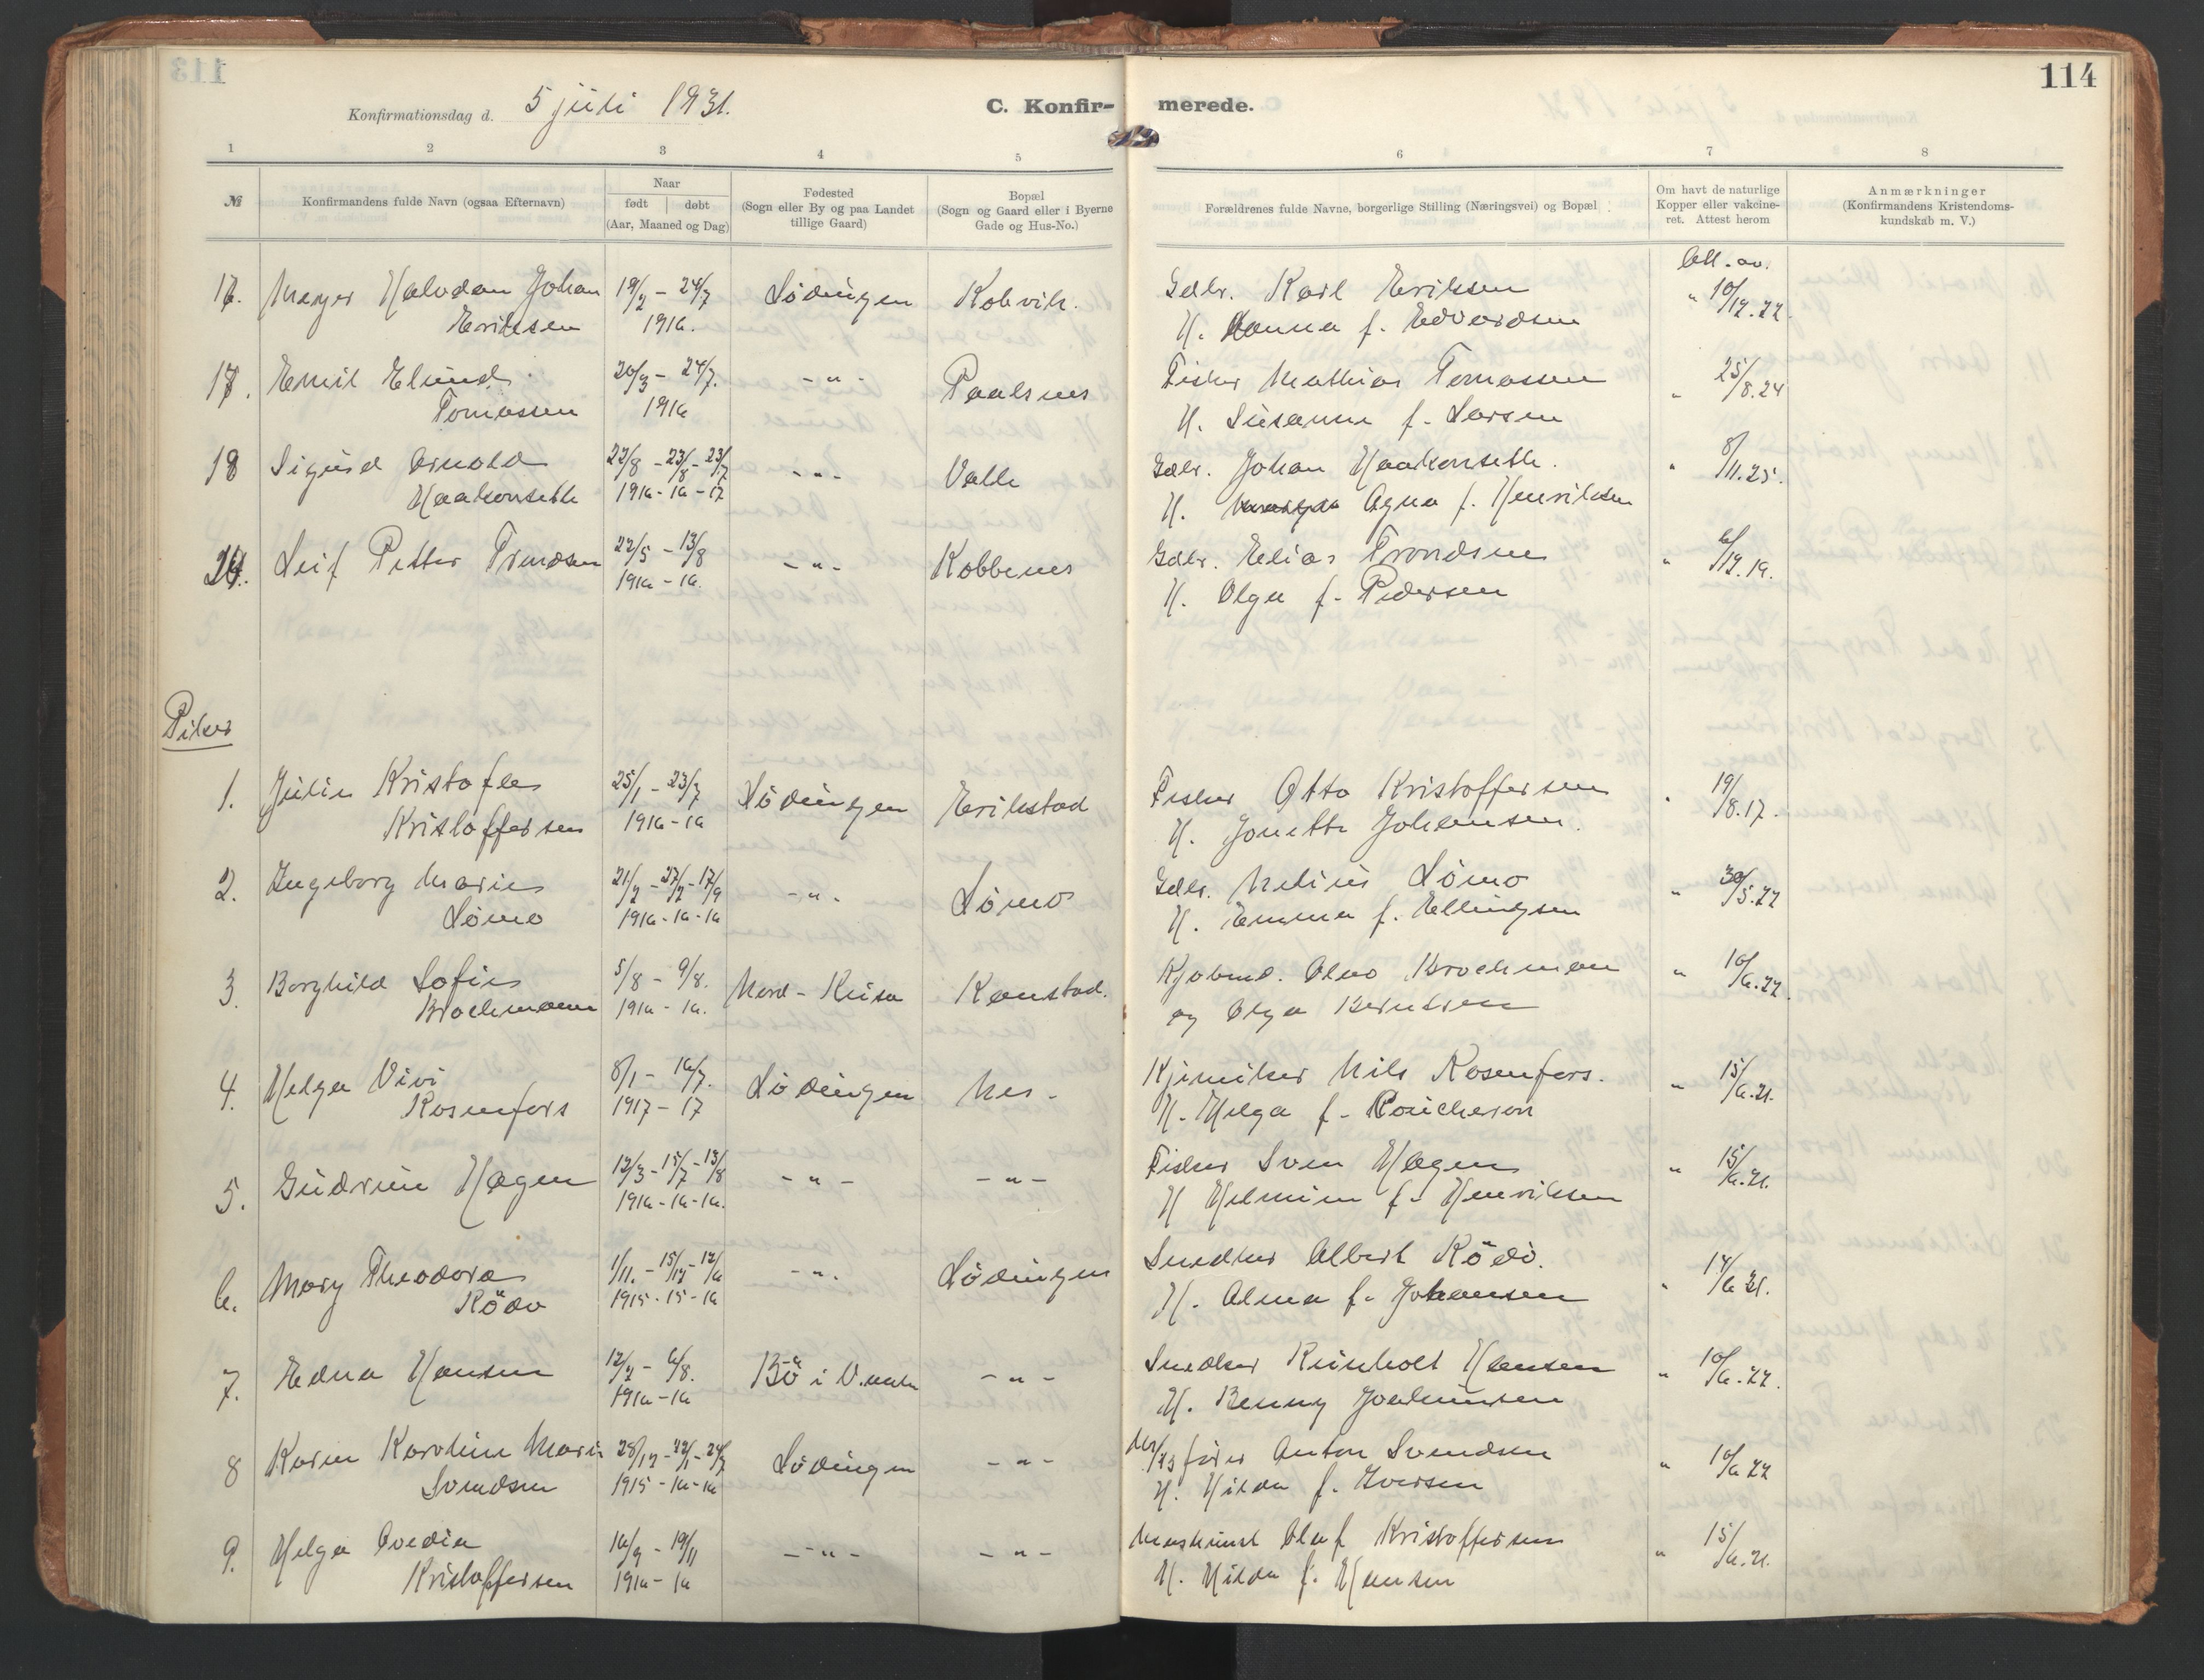 114
Konfirmationsdag d. 5 juli 1931.
C. Konfir-
merede.
1 2 3 4 5 6 7 8
№
Konfirmandens fulde Navn (ogsaa Efternavn)
Naar
født | døbt
(Aar, Maaned og Dag)
Fødested
(Sogn eller By og paa Landet
tillige Gaard)
Bopæl
(Sogn og Gaard eller i Byerne
Gade og Hus-No.)
Forældrenes fulde Navne, borgerlige Stilling (Næringsvei) og Bopæl
Om havt de naturlige
Kopper eller vakcine-
ret. Attest herom
Anmærkninger
(Konfirmandens Kristendoms-
kundskab m. V.)
Att. av.
16. Meyer Halvdan Johan 19/2 - 24/7 Lödingen Kobvik. Gdbr. Karl Eriksen " 10/12.22.
Eriksen 1916. H. Hanna f. Edvardsen
17. Emil Elund 20/3 - 24/7. - " - Paalsnes Fisker Mathias Tomassen " 25/8.24
Tomassen 1916 H. Susanne f. Larsen
18 Sigurd Arnold 22/8 - 23/8 - 23/7 - " - Valle Gdbr. Johan Haakonseth. " 8/11.25.
Haakonseth 1916-16-17 H. Agna f. Henriksen
Leif Petter Trondsen 22/5 - 13/8 - " - Kobbenes Gdbr. Elias Trondsen " 6/12.19.
1916-16. H. Olga f. Pedersen
Piker
1. Julie Kristofa 25/1 - 23/7 Lödingen Erikstad Fisker Otto Kristoffersen " 19/8.17.
Kristoffersen 1916-16 H. Jonette Johansen.
2. Ingeborg Marie 21/2 - 27/2 - 17/9 - " - Lömo Gdbr. Melius Lömo " 30/5.22
Lömo 1916-16-16 H. Emma f. Ellingsen
3. Borghild Sofie 5/8 - 9/8. Nord-Reisa Kanstad. Kjöbmd. Olav Brochmann " 10/6.22.
Brochmann 1916-16. og Olga Berntsen
4. Helga Vivi 8/1 - 16/7. Lödingen Nes. Kjemiker Nils Rosenfors. " 15/6.21.
Rosenfors 1917-17 H. Helga f. Roucheron
5. Gudrun Hagen 12/3 - 15/7 - 13/8 - " - - " - Fisker Sven Hagen " 15/6.21.
1916-16-16. H Helmine f. Henriksen
6. Mary Theodora 1/11. - 15/12 - 12/6 - " - Lödingen Snedker Albert Rödö. " 14/6 21.
Rödö 1915-15-16 H. Alma f. Johansen
7. Edna Hansen 12/2 - 6/8. Bö i V.aalen - " - Snedker Reinholt Hansen " 10/6.22.
1916-16 H. Benny Joakimsen
8 Karen Karoline Marie 28/12 - 22/1 - 24/7 Lödingen - " - fører Anton Svendsen " 10/6 22
Svendsen 1915-16-16 H. Hilda f. Iversen
9. Helga Ovedia 16/9 - 19/11 - " - - " - Maskinist Olaf Kristoffersen " 15/6.21.
Kristoffersen 1916-16 H. Hilda f. Hansen